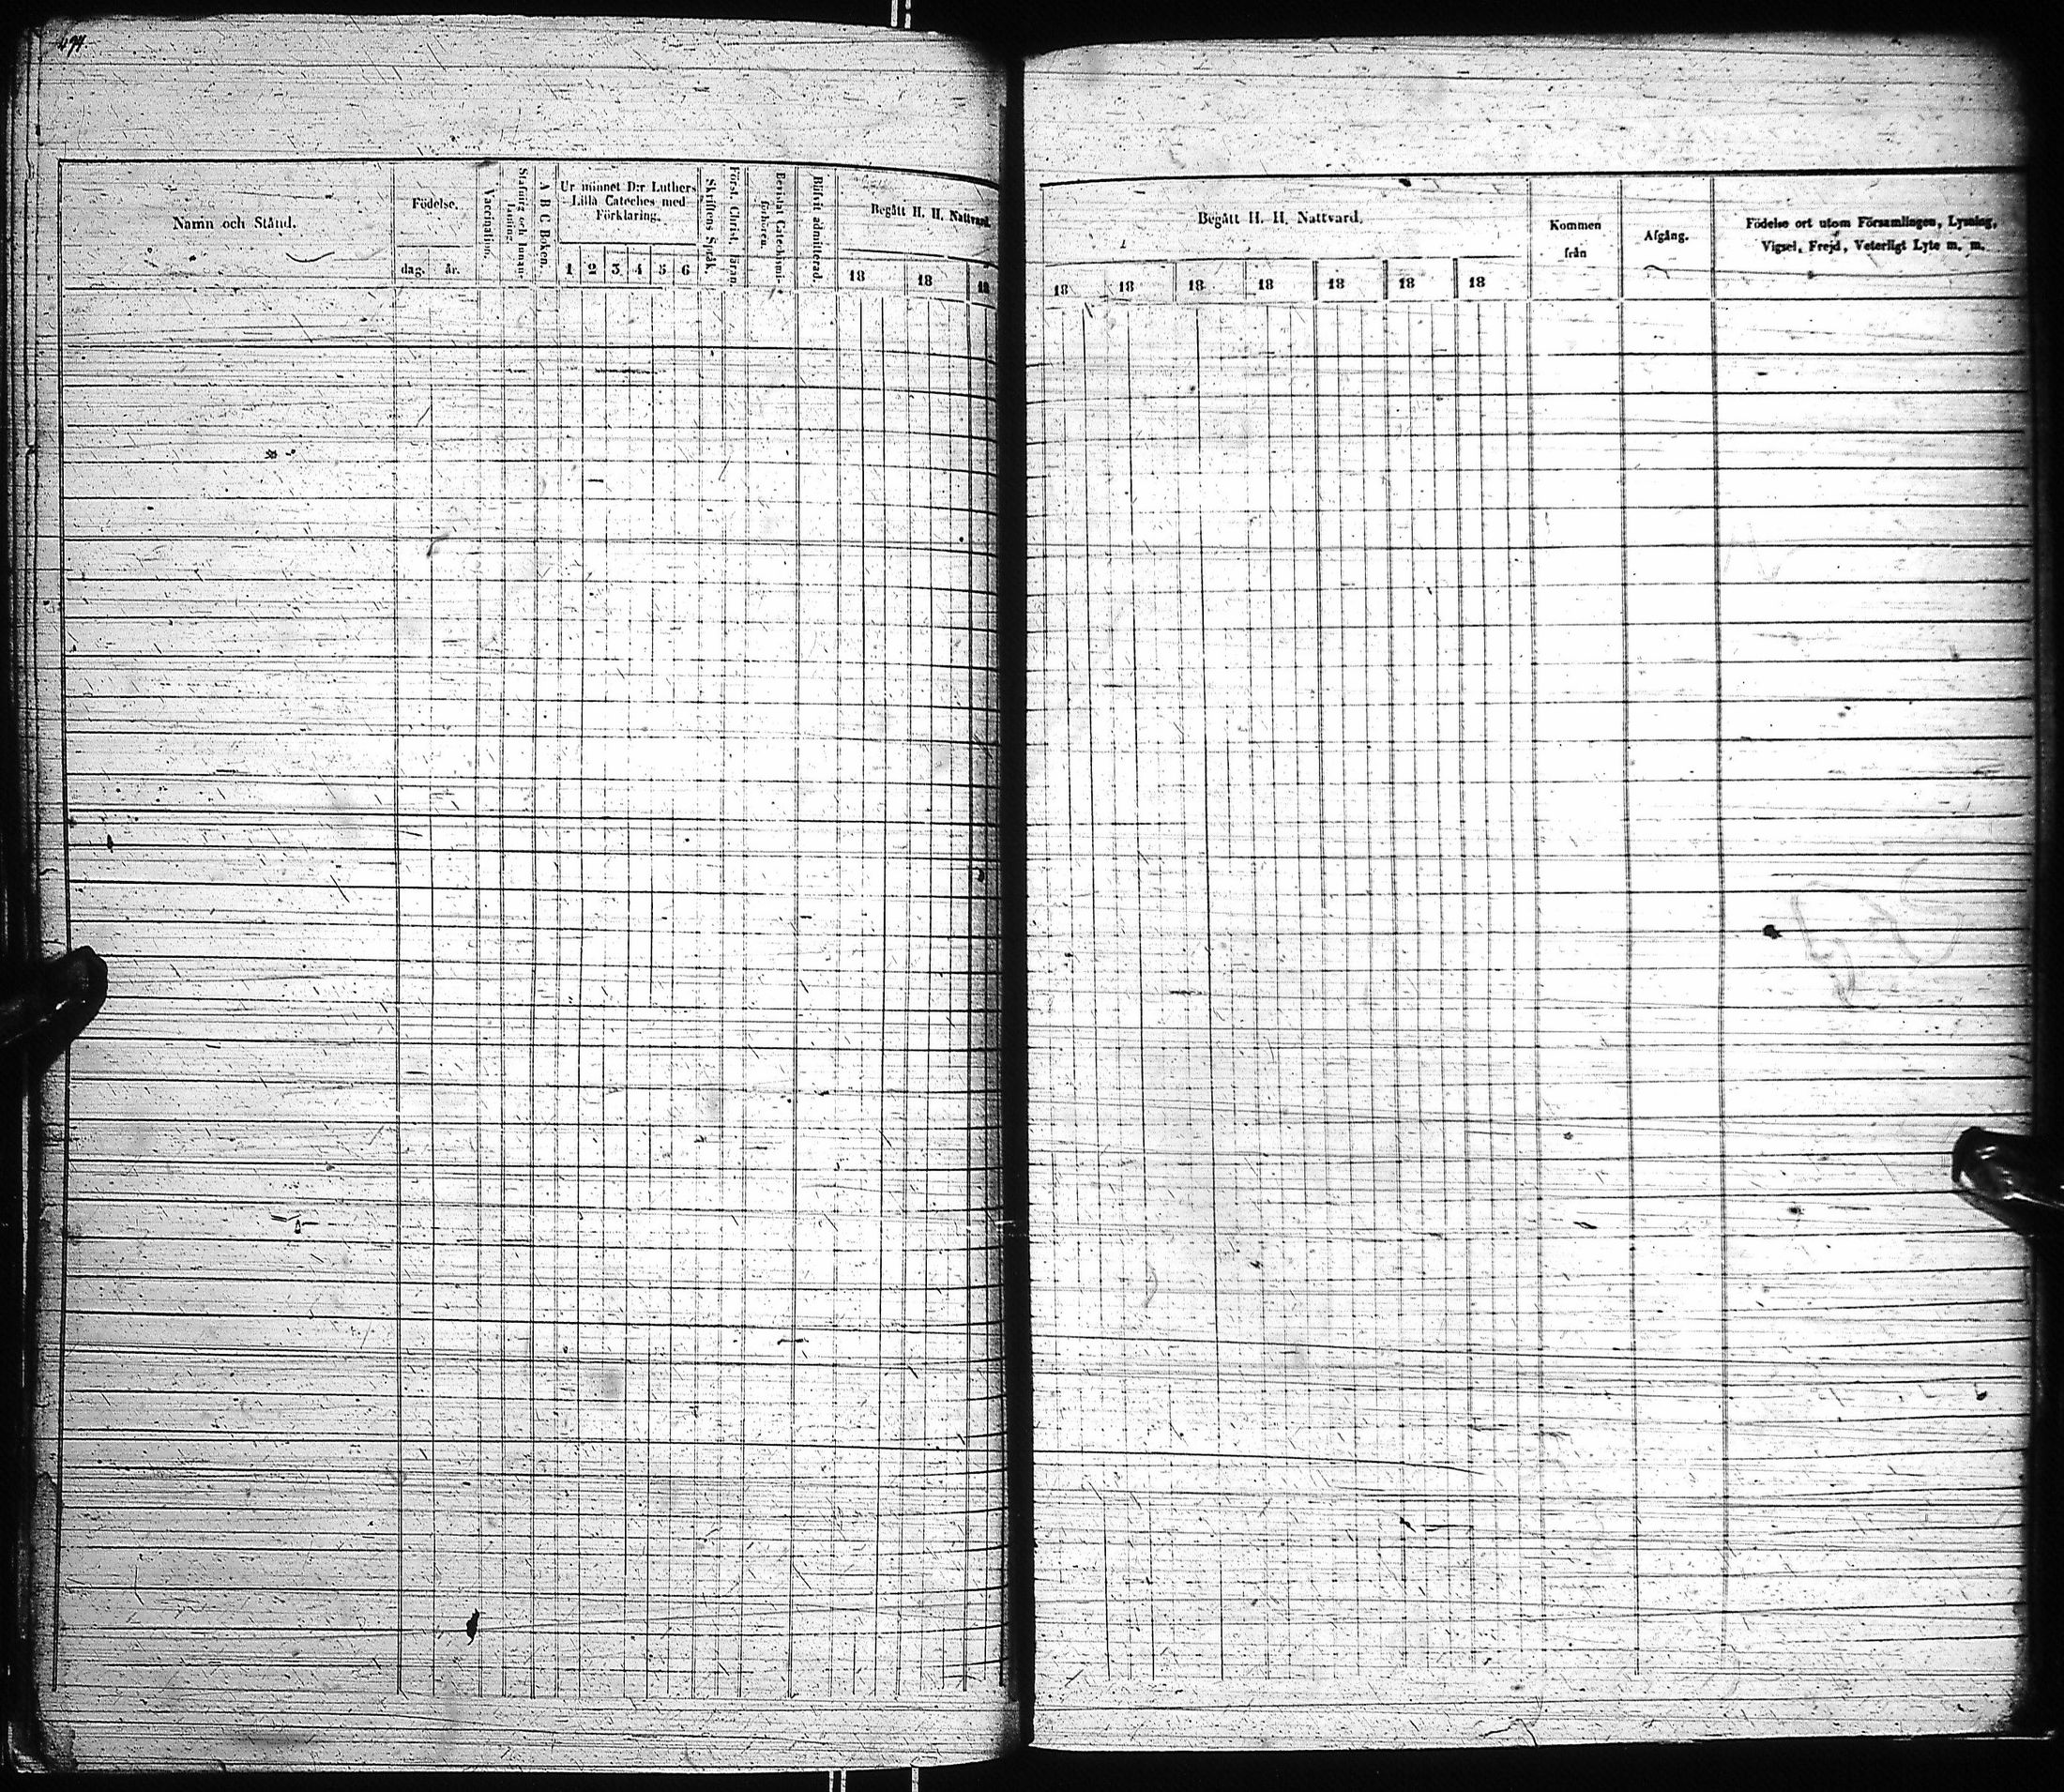 Namn och Stånd.
Födelse.
dag. år.
Vaccination.
Stafning och Innan-
läsning
A B C Boken.
Ur minnet D:r Luthers
Lilla Cateches med
Förklaring.
1 2 3 4 5 6
Skriftens Språk.
Först. Christ. läran.
Bevistat Catechismi-
förhören.
Blifvit admitterad.
Begått H. H. Nattvard.
18 18 18
Begått H. H. Nattvard.
18 18 18 18 18 18 18
Kommen
från
Afgång.
Födelse ort utom Församlingen, Lysning,
Vigsel, Frejd, Veterligt Lyte m. m.